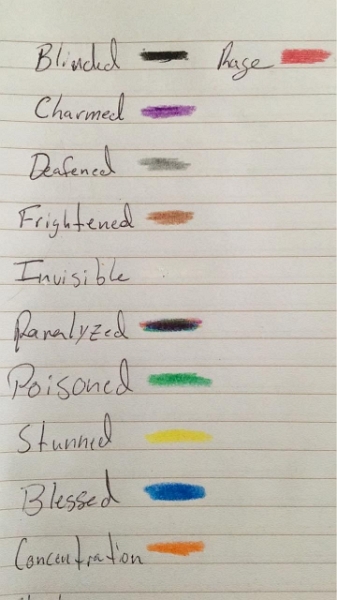 Blinded Rage
Charmed
Deafened
Frightened
Invisible
Paralyzed
Poisoned
Stunned
Blessed
Concentration